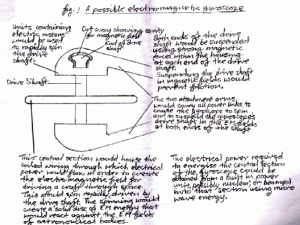 fig. 1 A possible electromagnetic gyroscope
Units containing
electric motors
would be used
to rapidly spin
the drive
shaft.
Cut away showing cavity
for magnetic field
End of drive
shaft
Both ends of the drive
shaft would be suspended
using strong magnetic
fields within the housing
at each end of the drive
shaft.
Suspending the drive shaft
in magnetic fields would
prevent friction.
Drive Shaft
The two attachment arms,
would carry all power links to
the gyroscope to
and to support the gyroscopes
drive shaft in the EM fields
at both ends of the shaft
This central section would house the
coiled wiring through which electrical
power would flow in order to create
the electromagnetic field for
driving a craft through space
This would spin rapidly, driven by
the drive shaft. The spinning would
create a solid disc of EM energy that
would react against the EM fields
of astronomical bodies.
The electrical power required
to energise the central section
of the gyroscope could be
obtained from a built in power
unit, possibly nuclear, or beamed
into that section using micro
wave energy.